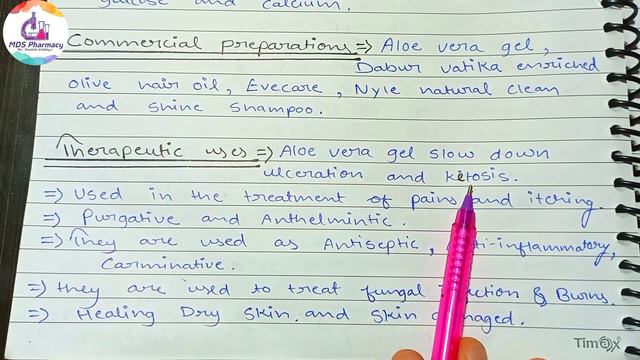 glucose and calcium.
MDS Pharmacy
Commercial preparations => Aloe vera gel,
Dabur vatika enriched
olive hair oil, Evecare, Nyle natural clean
and shine shampoo.
Therapeutic uses => Aloe vera gel slow down
ulceration and ketosis.
=> Used in the treatment of pains and itching.
=> Purgative and Anthelmintic.
=> They are used as Antiseptic, Anti-inflammatory,
Carminative.
=> they are used to treat fungal infection & Burns.
=> Healing Dry skin. and skin damaged.
Timex